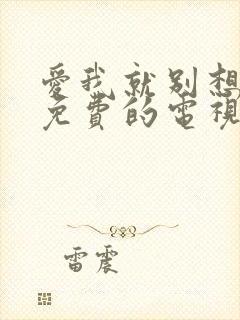 愛我就別想
免費的電視
雷震